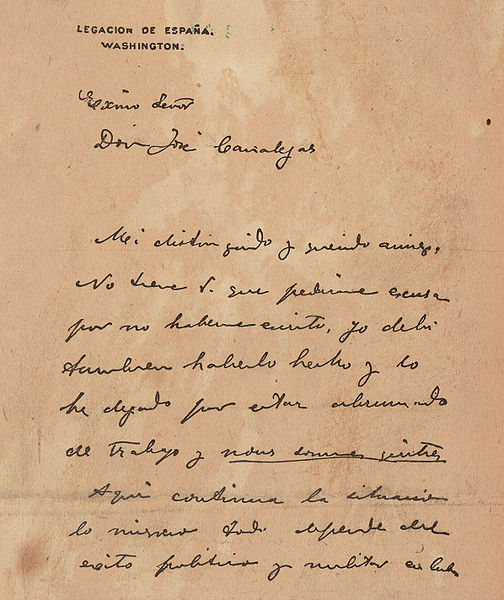 LEGACION DE ESPAÑA.
WASHINGTON.
Excmo Señor
Don José Canalejas
Mi distinguido y querido amigo,
No tiene V. que pedirme excusa
por no haberme escrito, yo debi
tambien haberlo hecho y lo
he dejado por estar abrumado
de trabajo y nous sommes quittes
Aqui continua la situacion
lo mismo todo depende del
exito politico y militar en Cuba